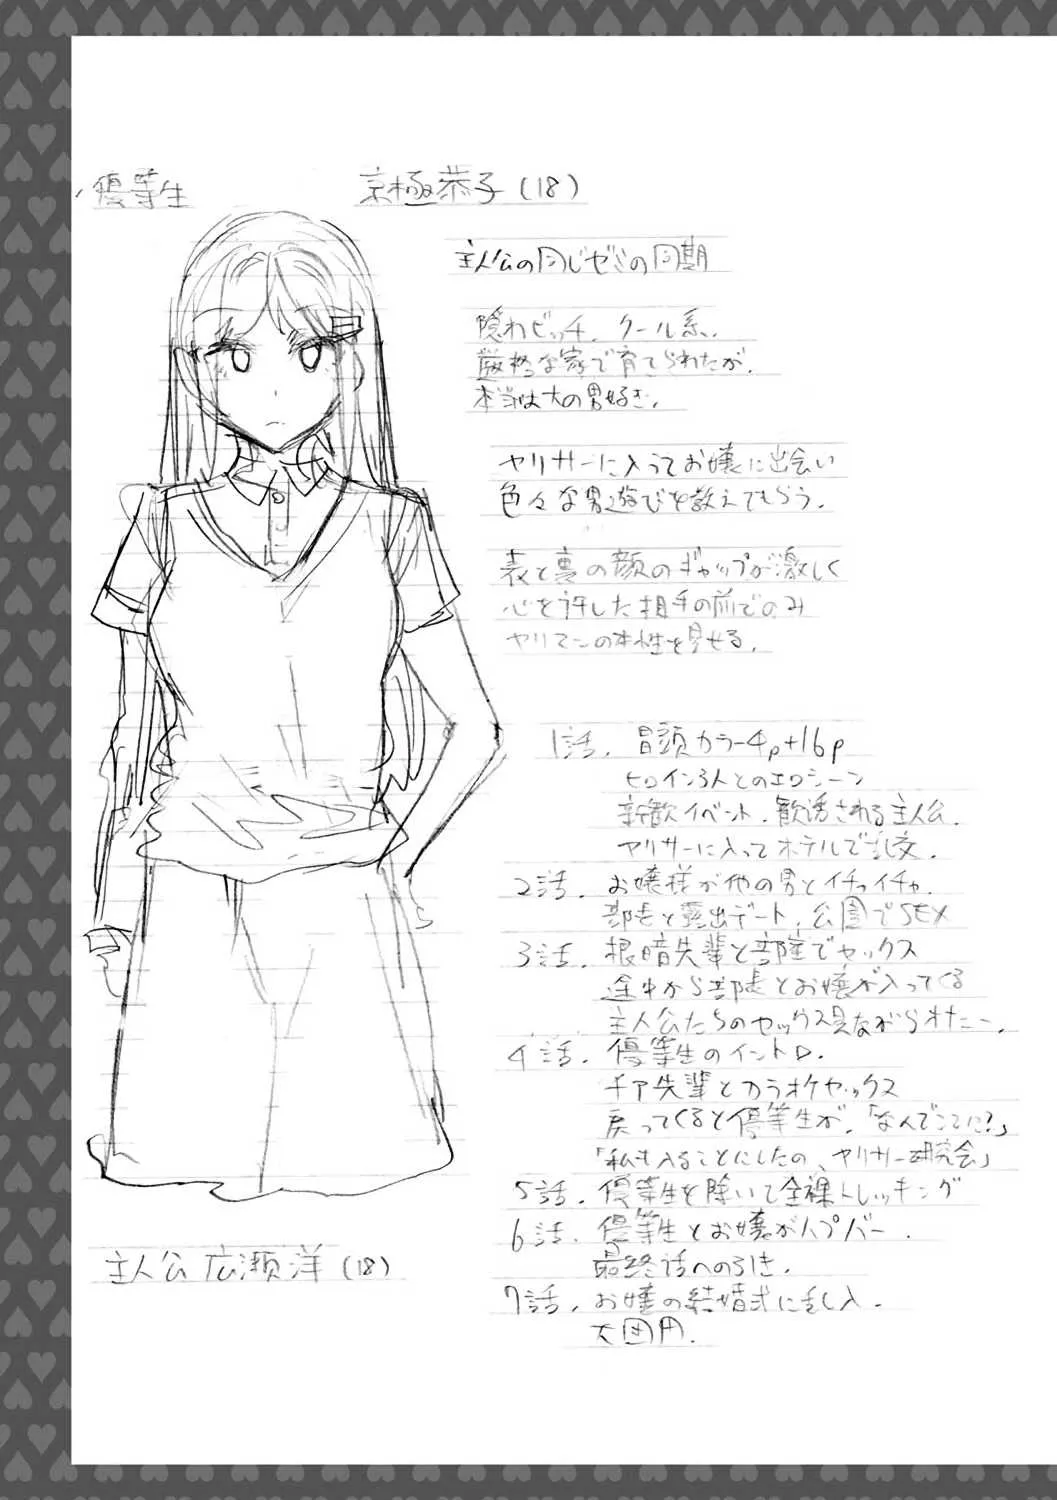 優等生
京極恭子(18)
主人公の同じゼミの同期
隠れビッチ、クール系、
厳格な家で育てられたが、
本当は大の男好き、
ヤリサーに入ってお嬢に出会い
色々な男遊びを教えてもらう、
表と裏の顔のギャップが激しく
心を許した相手の前でのみ
ヤリマンの本性を見せる、
1話、冒頭カラー4p+16p
ヒロイン3人とのエロシーン
新歓イベント、歓誘される主人公、
ヤリサーに入ってホテルで乱交、
2話、お嬢様が他の男とイチャイチャ、
部長と露出デート、公園でSEX
3話、根暗先輩と部室でセックス
途中から部長とお嬢が入ってくる
主人公たちのセックス見ながらオナニー、
4話、優等生のイントロ、
チア先輩とカラオケセックス
戻ってくると優等生が、「なんでここに?」
「私も入ることにしたの、ヤリサー研究会」
5話、優等生を除いて全裸トレッキング
6話、優等生とお嬢がハプバー、
最終話への引き、
7話、お嬢の結婚式に乱入、
大団円、
主人公 広瀬洋(18)